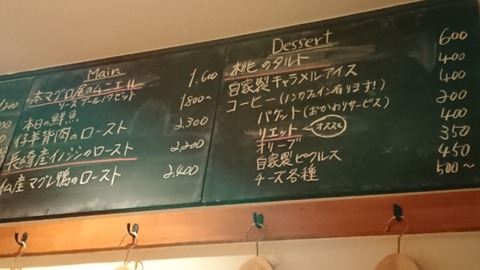 Main
本マグロ尾のムニエル 1,600
ソースブールノワゼット
本日の鮮魚 1,800~
仔羊背肉のロースト 2,300
長崎産イノシシのロースト 2,200
仏産マグレ鴨のロースト 2,400
Dessert
桃のタルト 600
自家製キャラメルアイス 400
コーヒー(ノンカフェイン有ります!) 400
バゲット(おかわりサービス) 200
リエット オススメ 400
オリーブ 350
自家製ピクルス 450
チーズ各種 500~